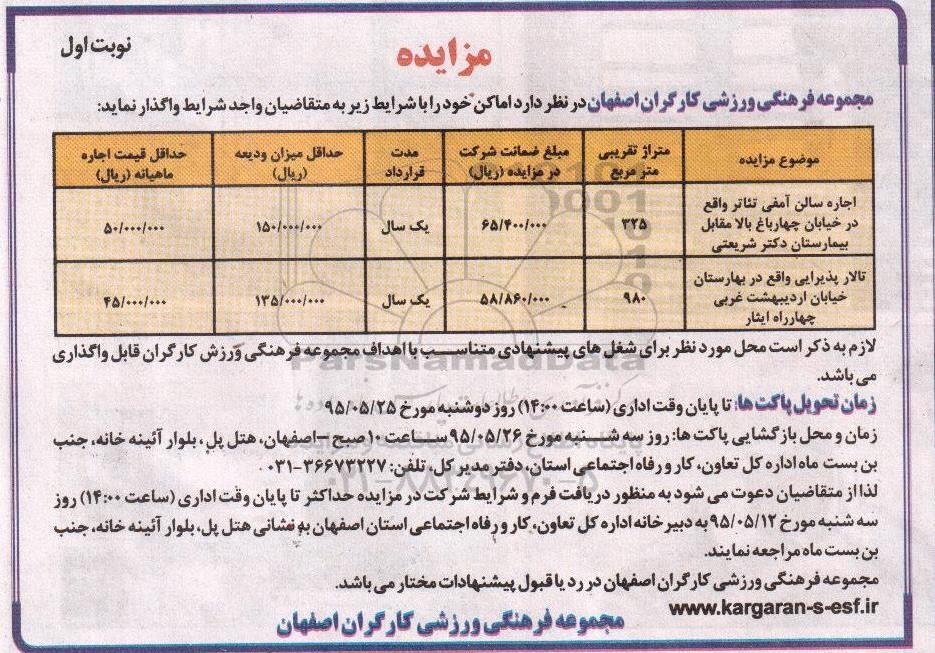 نوبت اول
مزایده
مجموعه فرهنگی ورزشی کارگران اصفهان در نظر دارد اماکن خود را با شرایط زیر به متقاضیان واجد شرایط واگذار نماید:
موضوع مزایده | متراژ تقریبی متر مربع | مبلغ ضمانت شرکت در مزایده (ریال) | مدت قرارداد | حداقل میزان ودیعه (ریال) | حداقل قیمت اجاره ماهیانه (ریال)
اجاره سالن آمفی تئاتر واقع در خیابان چهارباغ بالا مقابل بیمارستان دکتر شریعتی | ۳۲۵ | ۶۵/۴۰۰/۰۰۰ | یک سال | ۱۵۰/۰۰۰/۰۰۰ | ۵۰/۰۰۰/۰۰۰
تالار پذیرایی واقع در بهارستان خیابان اردیبهشت غربی چهارراه ایثار | ۹۸۰ | ۵۸/۸۶۰/۰۰۰ | یک سال | ۱۳۵/۰۰۰/۰۰۰ | ۴۵/۰۰۰/۰۰۰
لازم به ذکر است محل مورد نظر برای شغل های پیشنهادی متناسب با اهداف مجموعه فرهنگی ورزش کارگران قابل واگذاری
می باشد.
زمان تحویل پاکت ها: تا پایان وقت اداری (ساعت ۱۴:۰۰) روز دوشنبه مورخ ۹۵/۰۵/۲۵
زمان و محل بازگشایی پاکت ها: روز سه شنبه مورخ ۹۵/۰۵/۲۶ ساعت ۱۰ صبح - اصفهان، هتل پل، بلوار آئینه خانه، جنب
بن بست ماه اداره کل تعاون، کار و رفاه اجتماعی استان، دفتر مدیر کل، تلفن: ۳۶۶۷۳۲۲۷-۰۳۱
لذا از متقاضیان دعوت می شود به منظور دریافت فرم و شرایط شرکت در مزایده حداکثر تا پایان وقت اداری (ساعت ۱۴:۰۰) روز
سه شنبه مورخ ۹۵/۰۵/۱۲ به دبیر خانه اداره کل تعاون، کار و رفاه اجتماعی استان اصفهان به نشانی هتل پل، بلوار آئینه خانه، جنب
بن بست ماه مراجعه نمایند.
مجموعه فرهنگی ورزشی کارگران اصفهان در رد یا قبول پیشنهادات مختار می باشد.
www.kargaran-s-esf.ir
مجموعه فرهنگی ورزشی کارگران اصفهان
ParsNamadData
۰۲۱-۸۸۳۴۹۶۷۰-۵